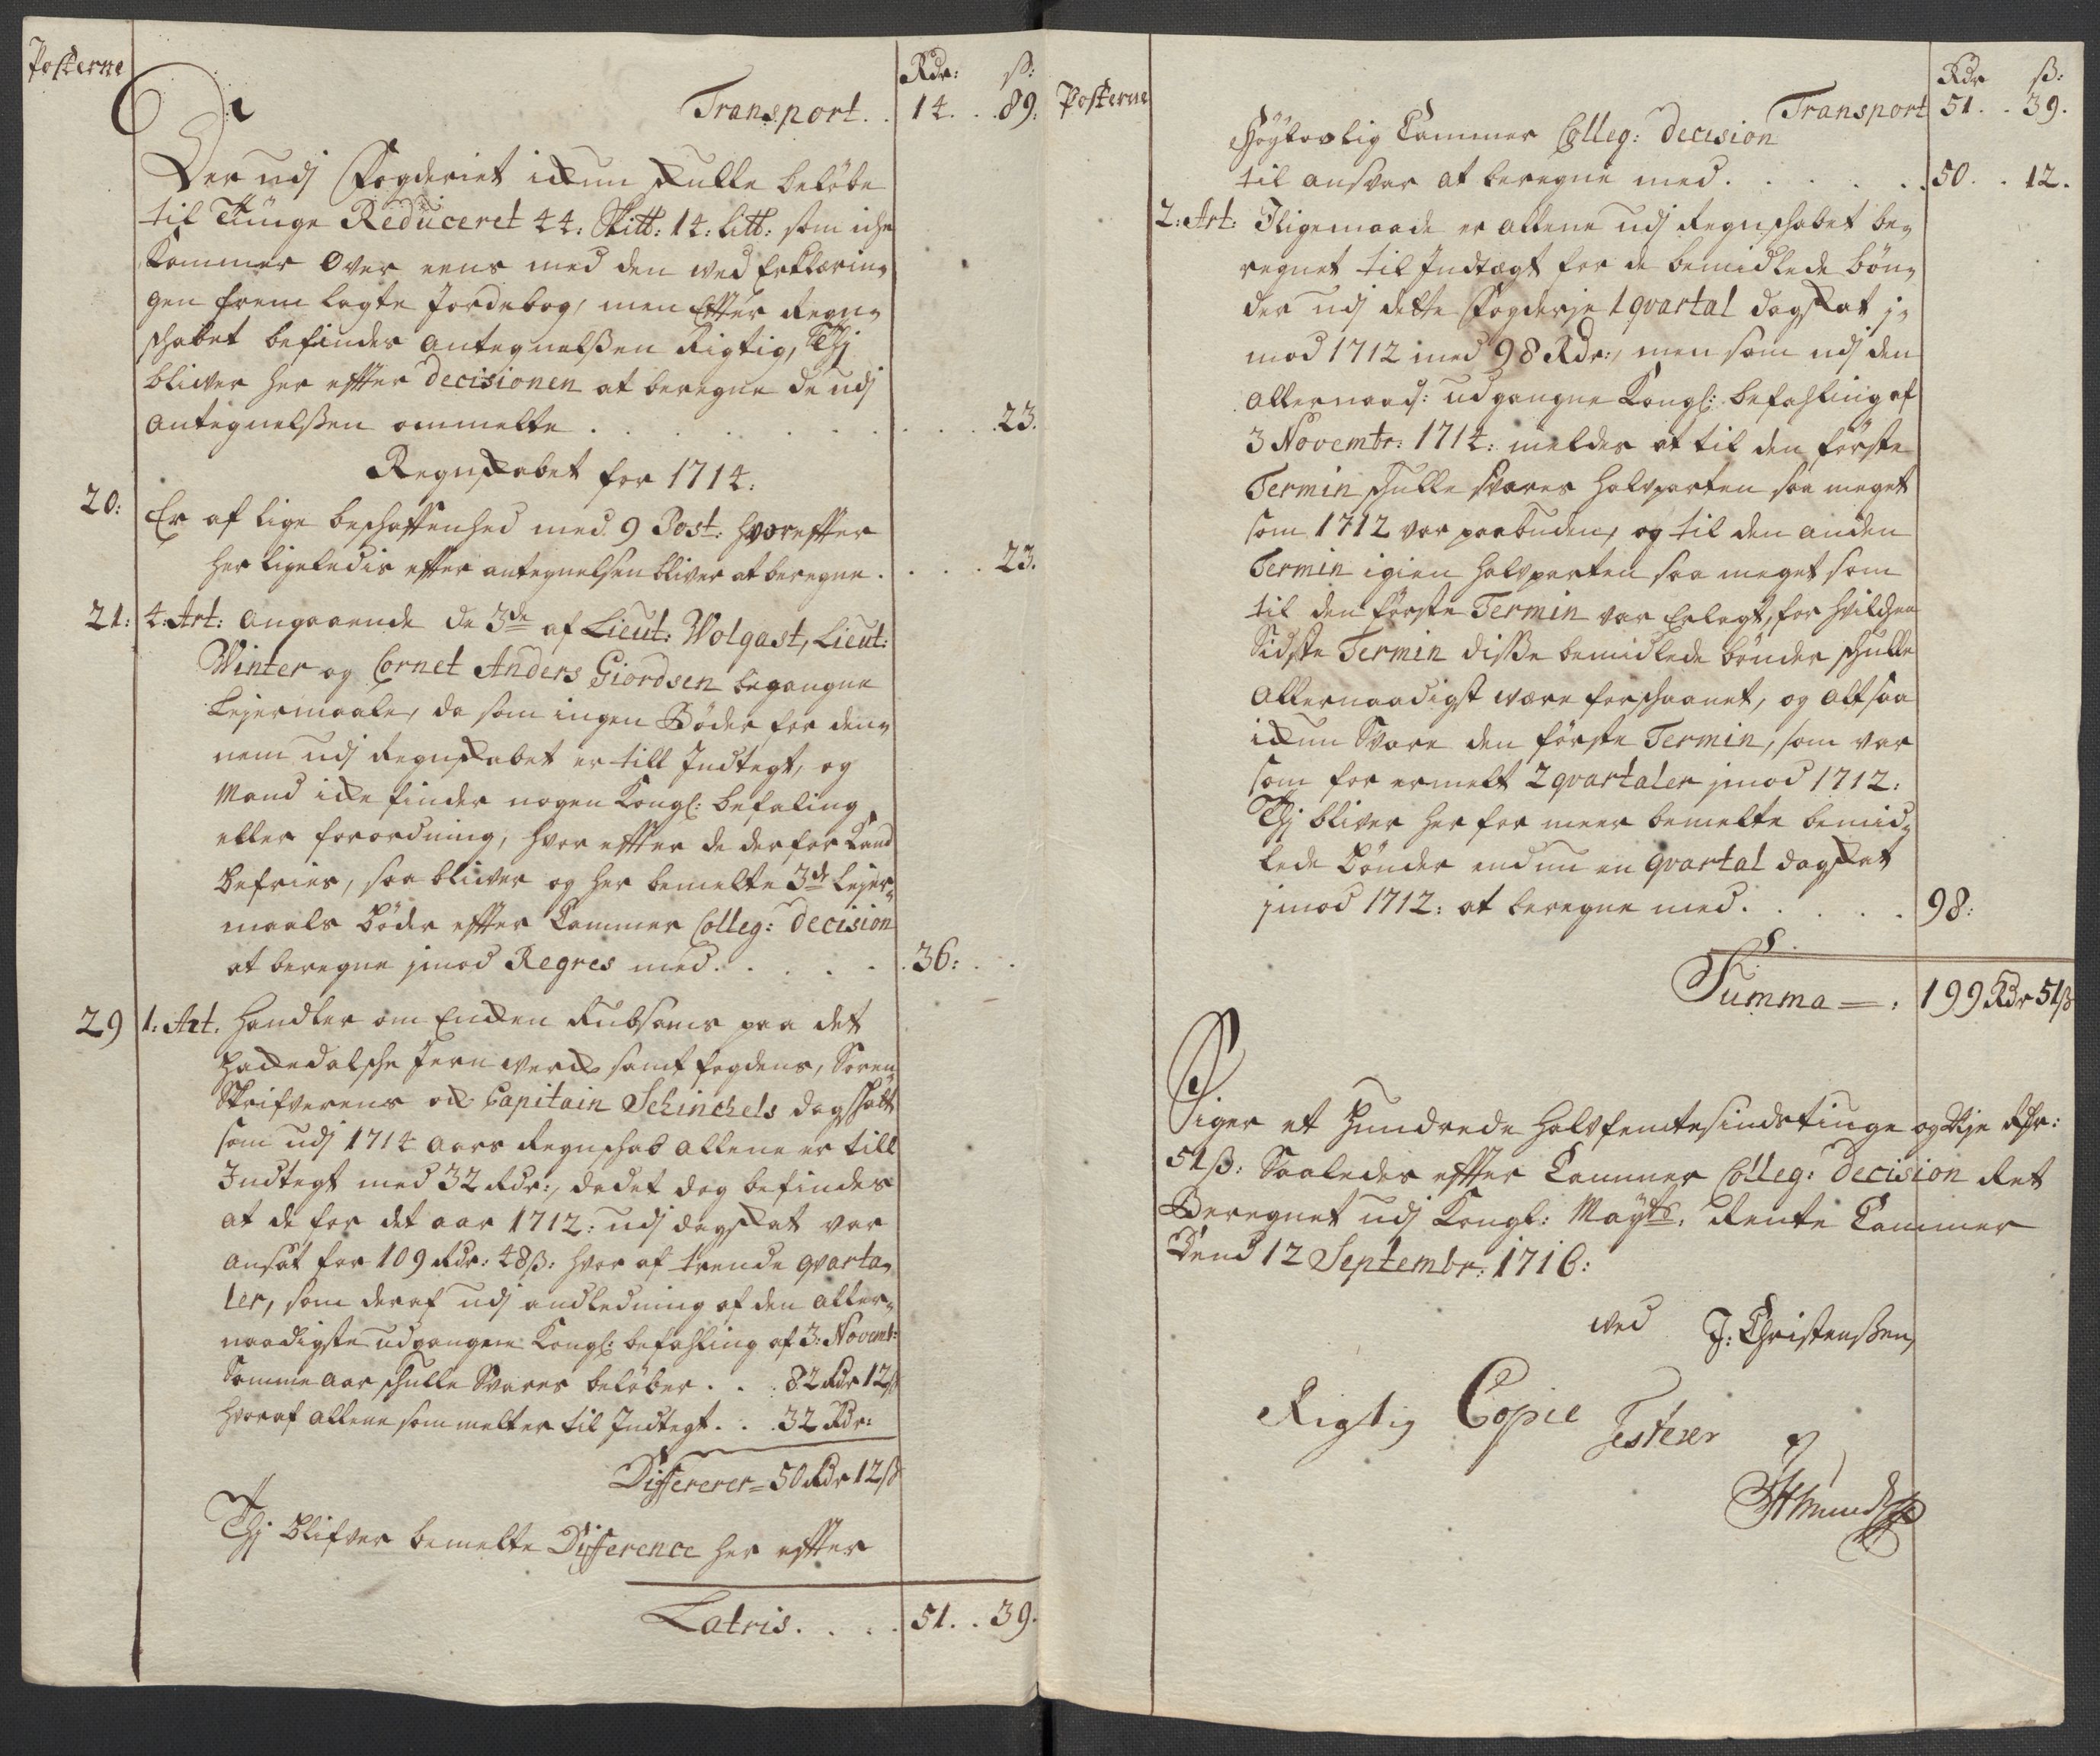 Posterne
Rdr: ß:
Transport. . 14. . .89.
Der udj Fogderiet ickun skulle beløbe
til Tiunge Reduceret 44: Skitt: 14: litt: som iche
kommer Over eens med den ved Erklærin-
gen frem lagte Jordebog, men Effter Regn-
schabet befindes Antegnelßen Rigtig, Thj
bliver her effter Decisionen at beregne de udj
Antegnelßen ommelte . . . . . . . . . . 23.
Regnskabet for 1714.
20: Er af lige beschaffenhed med 9 Post: hvoreffter
her ligeledis effter antegnelsen bliver at beregne . . . . 23.
21: 4: Art: Angaaende de 3de af Lieut: Wolgast, Lieut:
Winter og Cornet Anders Giordsen begangne
Lejermaale, da som ingen Bøder for den-
nem udj Regnskabet er till Indtegt, og
Mand icke finder nogen Kongl: befaling
eller forordning, hvor effter de derfor kand
befries, saa bliver og her bemelte 3de Lejer-
maals Bøder effter Cammer Colleg: Decision
at beregne jmod Regres med. . . . . . 36: . .
29 1: Art. Handler om Encken Rubsams paa det
Hackedalsche Jern werck samt fogdens, Soren-
Skrifverens og Capitain Schinckels dagskatt
som udj 1714 Aars Regnschab allene er till
Indtegt med 32 Rdr:, da det dog befindes
at de for det aar 1712: udj dagskat var
ansat for 109 Rdr: 48ß: hvor af trende qvarta-
ler, som deraf udj andledning af den aller-
naadigste udgangne Kongl: befahling af 3: Novemb:
Samme Aar schulle Svares beløber. . . 82 Rdr 12ß
hvoraf allene som melt er til Indtegt. . . 32 Rdr:
Differerer = 50 Rdr 12ß
Thj blifver bemelte Difference her effter
Latris. . . . 51. . 39.
Posterne
Rdr ß:
Transport 51. . 39.
Høyloflig Cammer Colleg: Decision
til ansvar at beregne med. . . . . . . 50. . 12.
2: Art: Iligemaade er allene udj Regnschabet be-
regnet til Indtægt for de bemidlede Bøn-
der udj dette Fogderje 1 qvartal dagskat j-
mod 1712 med 98 Rdr:, men som udj den
allernaad: udgangne Kongl: befahling af
3 Novembr: 1714: meldes at til den første
Termin schulle svares halvparten saa meget
som 1712 var paabuden, og til den anden
Termin igien halvparten saa meget som
til den første Termin var Erlagt, for hvilchen
Sidste Termin disse bemidlede bønder schulle
allernaadigst være forschaanet, og altsaa
ickun Svare den første Termin, som var
som for ermelt 2 qvartaler jmod 1712:
Thj bliver her for meer bemelte bemid-
lede Bønder endnu en qvartal dagskat
jmod 1712: at beregne med. . . . . . 98:
Summa = . 199 Rdr 51ß
Siger et Hundrede Halvfemtesindstiuge og Nje Rdr:
51ß: Saaledes effter Cammer Colleg: Decision Ret
Beregnet udj Kongl: Mayts. Rente Cammer
Dend 12 Septembr: 1716:
ved J: Christenßen,
Rigtig Copie
Testerer